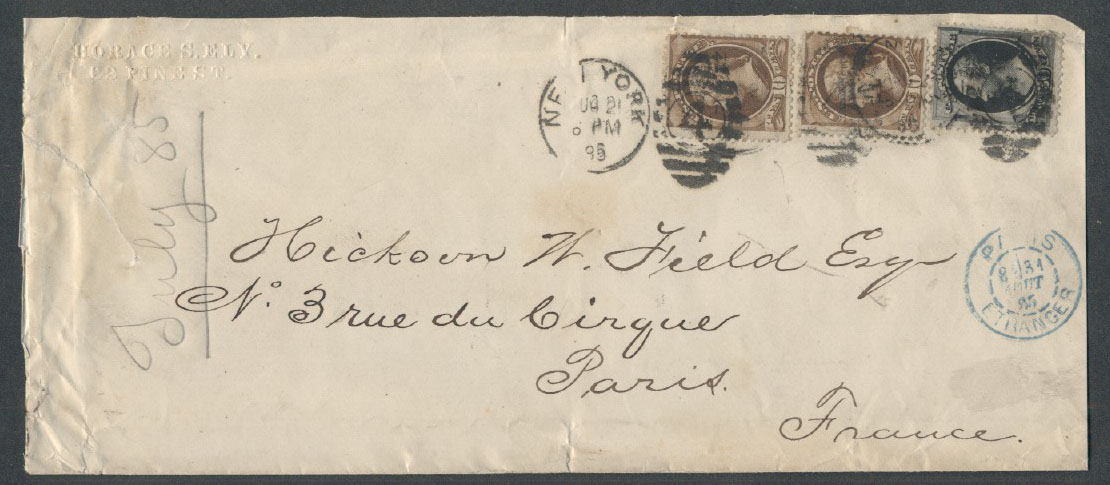 HORACE S. ELY.
62 PINE ST.
July 85
NEW YORK
AUG 21
6 PM
85
Hickson W. Field Esqr
No. 3 rue du Cirque
Paris.
France.
PARIS
31
AOUT
85
ETRANGER